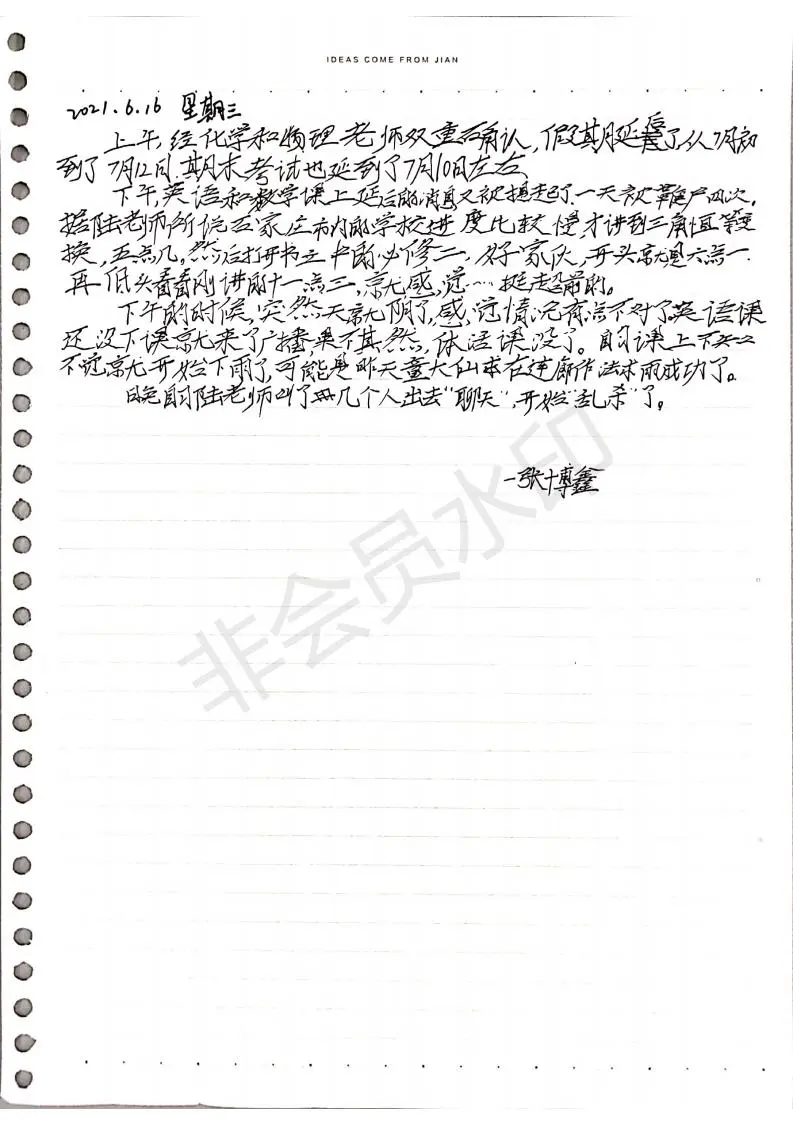 IDEAS COME FROM JIAN
2021.6.16 星期三
上午,经化学和物理老师双重确认,假期延后了从7月初
到了7月12日.期末考试也延到了7月10日左右
下午,英语和数学课上延后的消息又被提起了.一天被鞭尸四次.
据陆老师所说石家庄市内的学校进度比较慢,才讲到三角恒等变
换,五点几,然后打开书立中的必修二,好家伙,开头就是六点一.
再低头看看刚讲的十一点三,就感觉……挺超前的。
下午的时候,突然天就阴了,感觉情况有点不对了.英语课
还没下课就来了广播,果不其然,体活课没了。自习课上
不过就开始下雨了,可能是昨天童大仙本在连廊作法求雨成功了。
晚自习陆老师叫了几个人出去"聊天",开始"乱杀"了。
—张博鑫
非会员水印